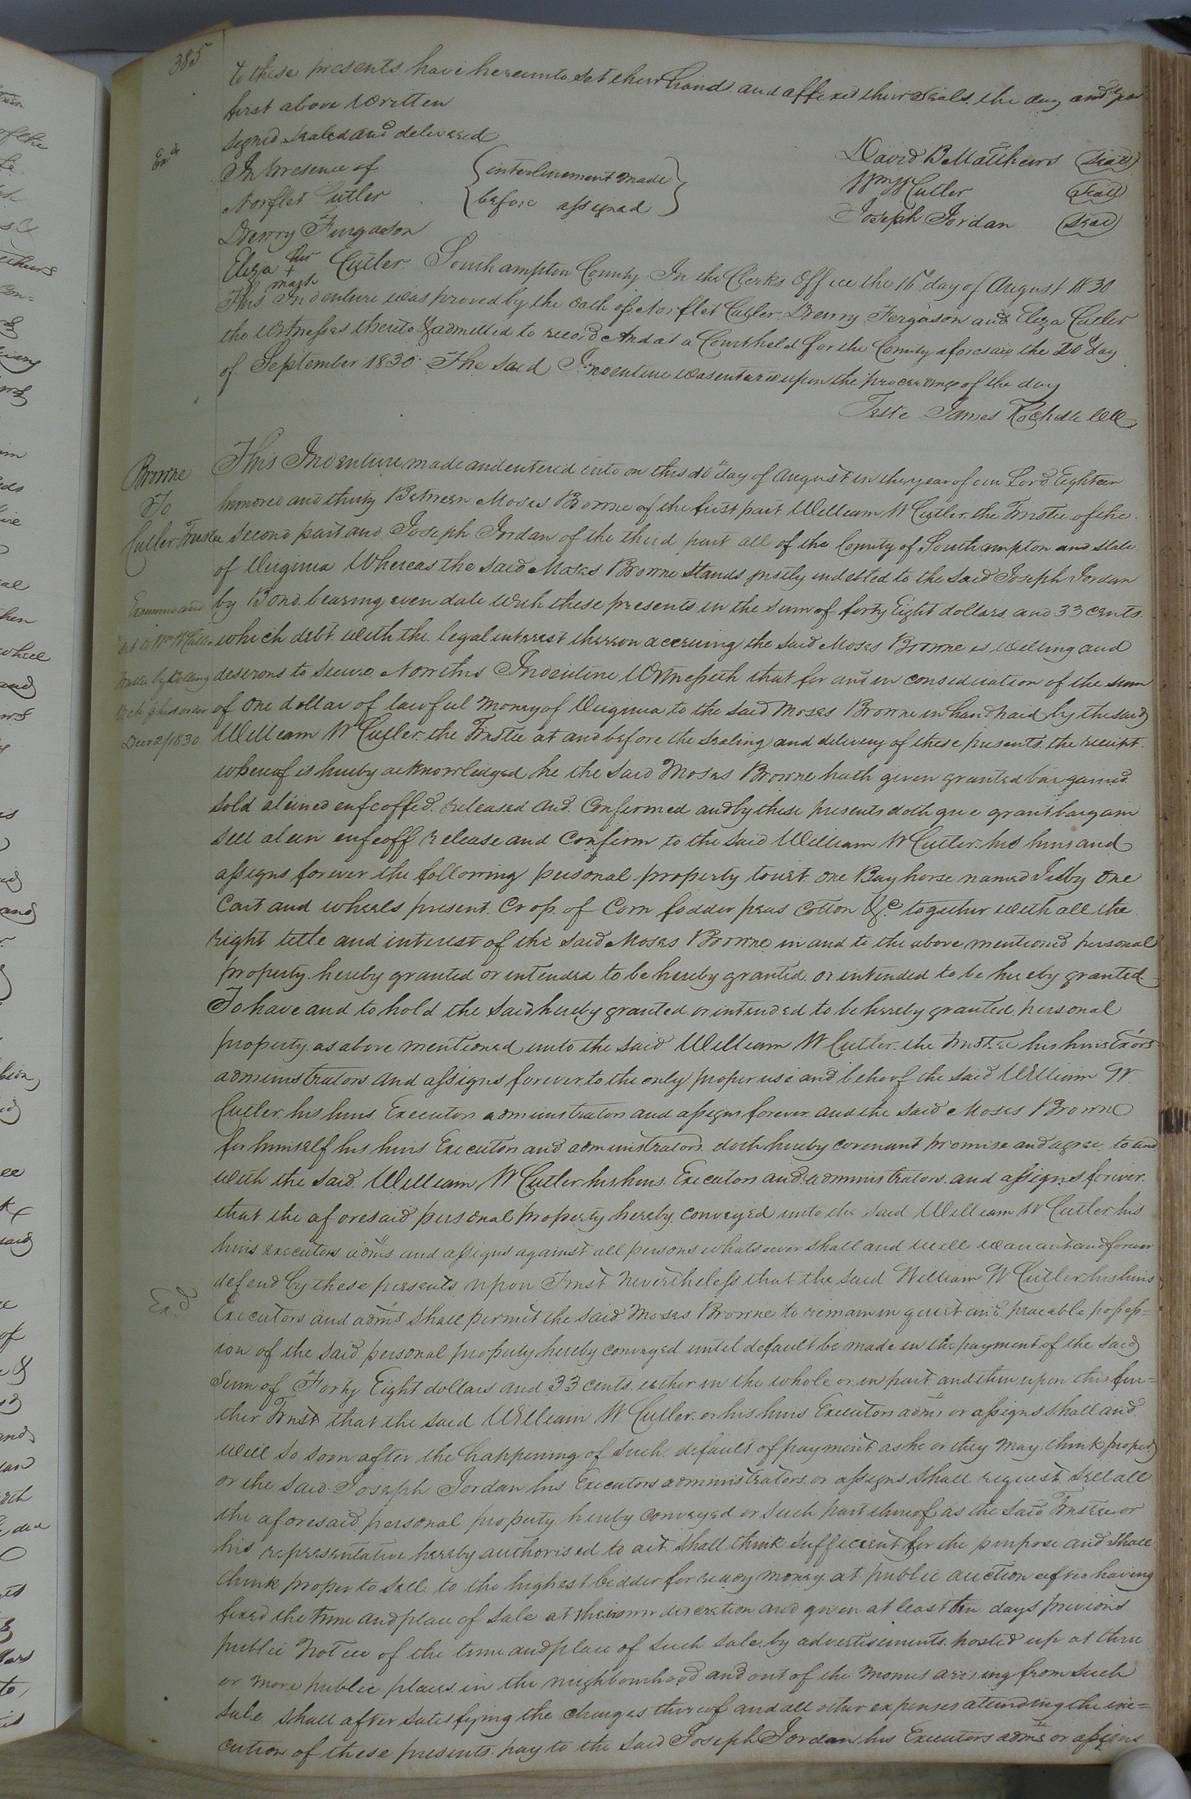 385
to these presents have hereunto set their hands and affixed their seals the day and year
first above written
Signed sealed and delivered
Exd
In presence of
Norflet Cutler
Drewry Furgason
{interlinement made
before assigned}
David B Matthews (Seal)
Wm W Cutler (Seal)
Joseph Jordan (Seal)
Eliza her + mark Cutler Southampton County In the Clerks Office the 16th day of August 1830
This Indenture was proved by the oath of Norflet Cutler Drewry Fergason and Eliza Cutler
the witnesses thereto & admitted to record And at a Court held for the County aforesaid the 20th day
of September 1830 The said Indenture was entered upon the proceedings of the day
Teste James Rochelle Clk
Browne
To
Cutler Trustee
Examined and
Trustee by
order
Decr 1830
This Indenture made and entered into on this day of August in the year of our Lord Eighteen
hundred and thirty Between Moses Browne of the first part William W Cutler the Trustee of the
second part and Joseph Jordan of the third part all of the County of Southampton and State
of Virginia Whereas the said Moses Browne stands justly indebted to the said Joseph Jordan
by Bond bearing even date with these presents in the sum of forty Eight dollars and 33 cents
which debt with the legal interest thereon accruing the said Moses Browne is willing and
desirous to secure Now this Indenture Witnesseth that for and in consideration of the sum
of one dollar of lawful money of Virginia to the said Moses Browne in hand paid by the said
William W Cutler the Trustee at and before the sealing and delivery of these presents the receipt
whereof is hereby acknowledged he the said Moses Browne hath given granted bargained
sold aleined enfeoffed released and confirmed and by these presents doth give grant bargain
sell alein enfeoff release and confirm to the said William W Cutler his heirs and
assigns forever the following personal property towit one Bay horse named one
Cart and wheels present Crop of Corn fodder peas Cotton &c together with all the
right title and interest of the said Moses Browne in and to the above mentioned personal
property hereby granted or intended to be hereby granted or intended to be hereby granted
To have and to hold the said hereby granted or intended to be hereby granted personal
property as above mentioned unto the said William W Cutler the Trustee his heirs Exors
administrators and assigns forever to the only proper use and behoof the said William W
Cutler his heirs Executors administrators and assigns forever and the said Moses Browne
for himself his heirs Executors and administrators doth hereby covenant promise and agree to and
with the said William W Cutler his heirs Executors and administrators and assigns forever
that the aforesaid personal property hereby conveyed unto the said William W Cutler his
heirs executors adms and assigns against all persons whatsoever shall and will warrant and forever
defend by these presents upon Trust Nevertheless that the said William W Cutler his heirs
Exd
Executors and adms shall permit the said Moses Browne to remain in quiet and peaceable possess=
ion of the said personal property hereby conveyed until default be made in the payment of the said
Sum of Forty Eight dollars and 33 cents either in the whole or in part and then upon this fur=
ther Trust that the said William W Cutler or his heirs Executors adms or assigns shall and
will so soon after the happening of such default of payment as he or they may think proper
or the said Joseph Jordan his Executors administrators or assigns shall request sell all
the aforesaid personal property hereby conveyed or such part thereof as the said Trustee or
his representative hereby authorised to act shall think sufficient for the purpose and shall
think proper to sell to the highest bidder for ready money at public auction after having
fixed the time and place of sale at their own discretion and given at least ten days previous
public notice of the time and place of such sale by advertisements posted up at three
or more public places in the neighbourhood and out of the monies arising from such
sale shall after satisfying the charges thereof and all other expenses attending the exe=
cution of these presents pay to the said Joseph Jordan his Executors adms or assigns